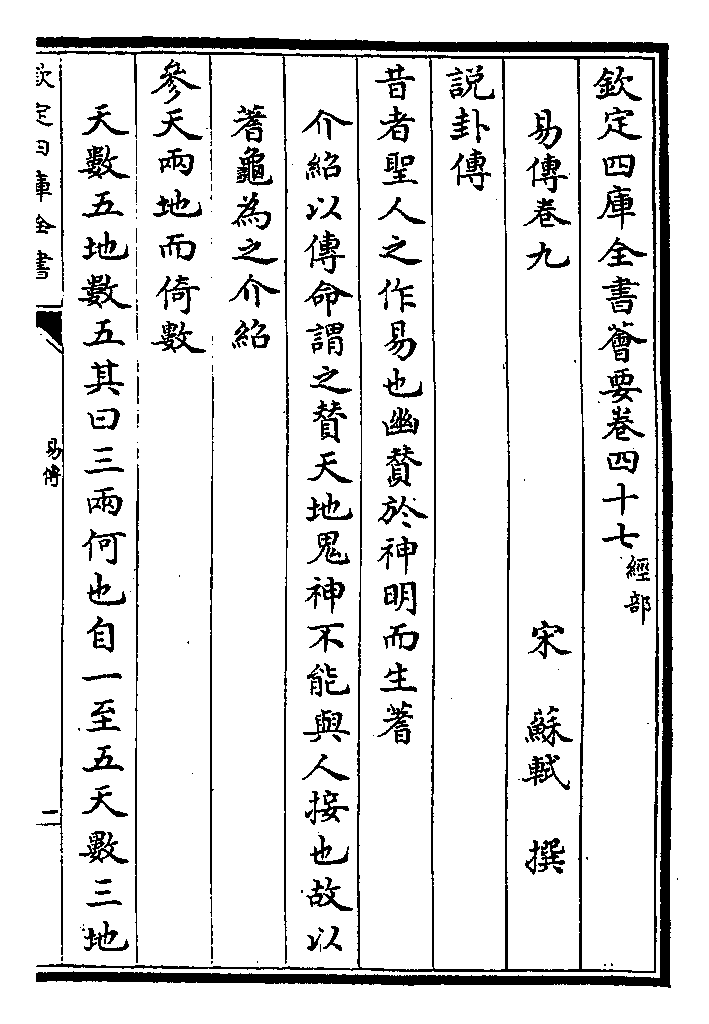 欽定四庫全書薈要卷四十七經部
易傳卷九 宋 蘇軾 撰
説卦傳
昔者聖人之作易也幽贊於神明而生蓍
介紹以傳命謂之賛天地鬼神不能與人接也故以
蓍龜為之介紹
參天兩地而倚數
天數五地數五其曰三兩何也自一至五天數三地
欽定四庫全書
易傳
二